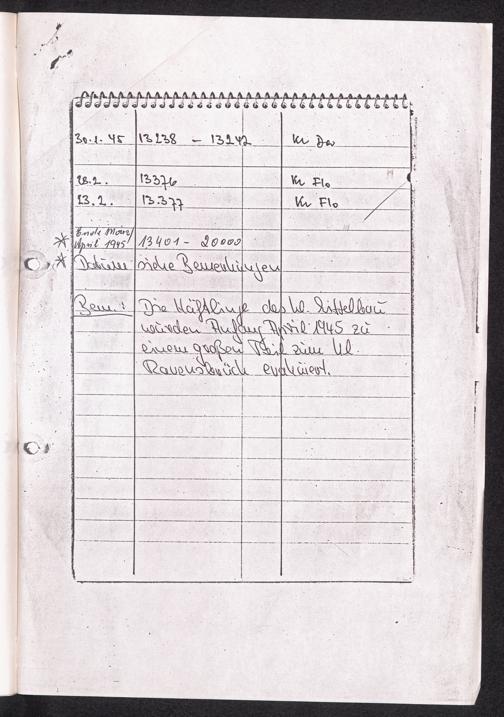 30.1.45 13238 - 13242 Kr Da
28.2. 13376 Kr Flo
23.2. 13.377 Kr Flo
* Ende März/
April 1945 13401 - 20000
* siehe Bemerkungen
Bem.: Die Häftlinge des Kl. Mittelbau
wurden Anfang April 1945 zu
einem großen Teil zum Kl.
Ravensbrück evakuiert.